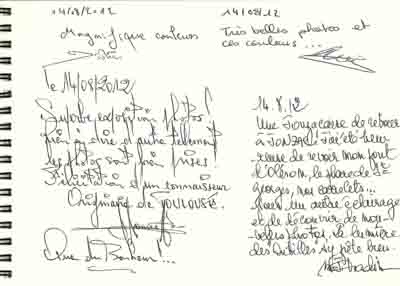 14/08/2012
Magnifique couleurs
14/08/12
Très belles photos et
ces couleurs...
le 14/08/2012
Superbe exposition photos!
rien à dire et autre tellement
les photos sont bien prises
Félicitations d'un connaisseur
Originaire de TOULOUSE.
Que du Bonheur...
14.8.12
Une Jonzacaise de retour
à JONZAC! J'ai été heu-
reuse de revoir mon pont
d'Oléron, le phare de St
Georges, nos carrelets...
sous un autre éclairage
et de découvrir de nou-
velles photos. La lumière
des Antilles s'y prête bien.